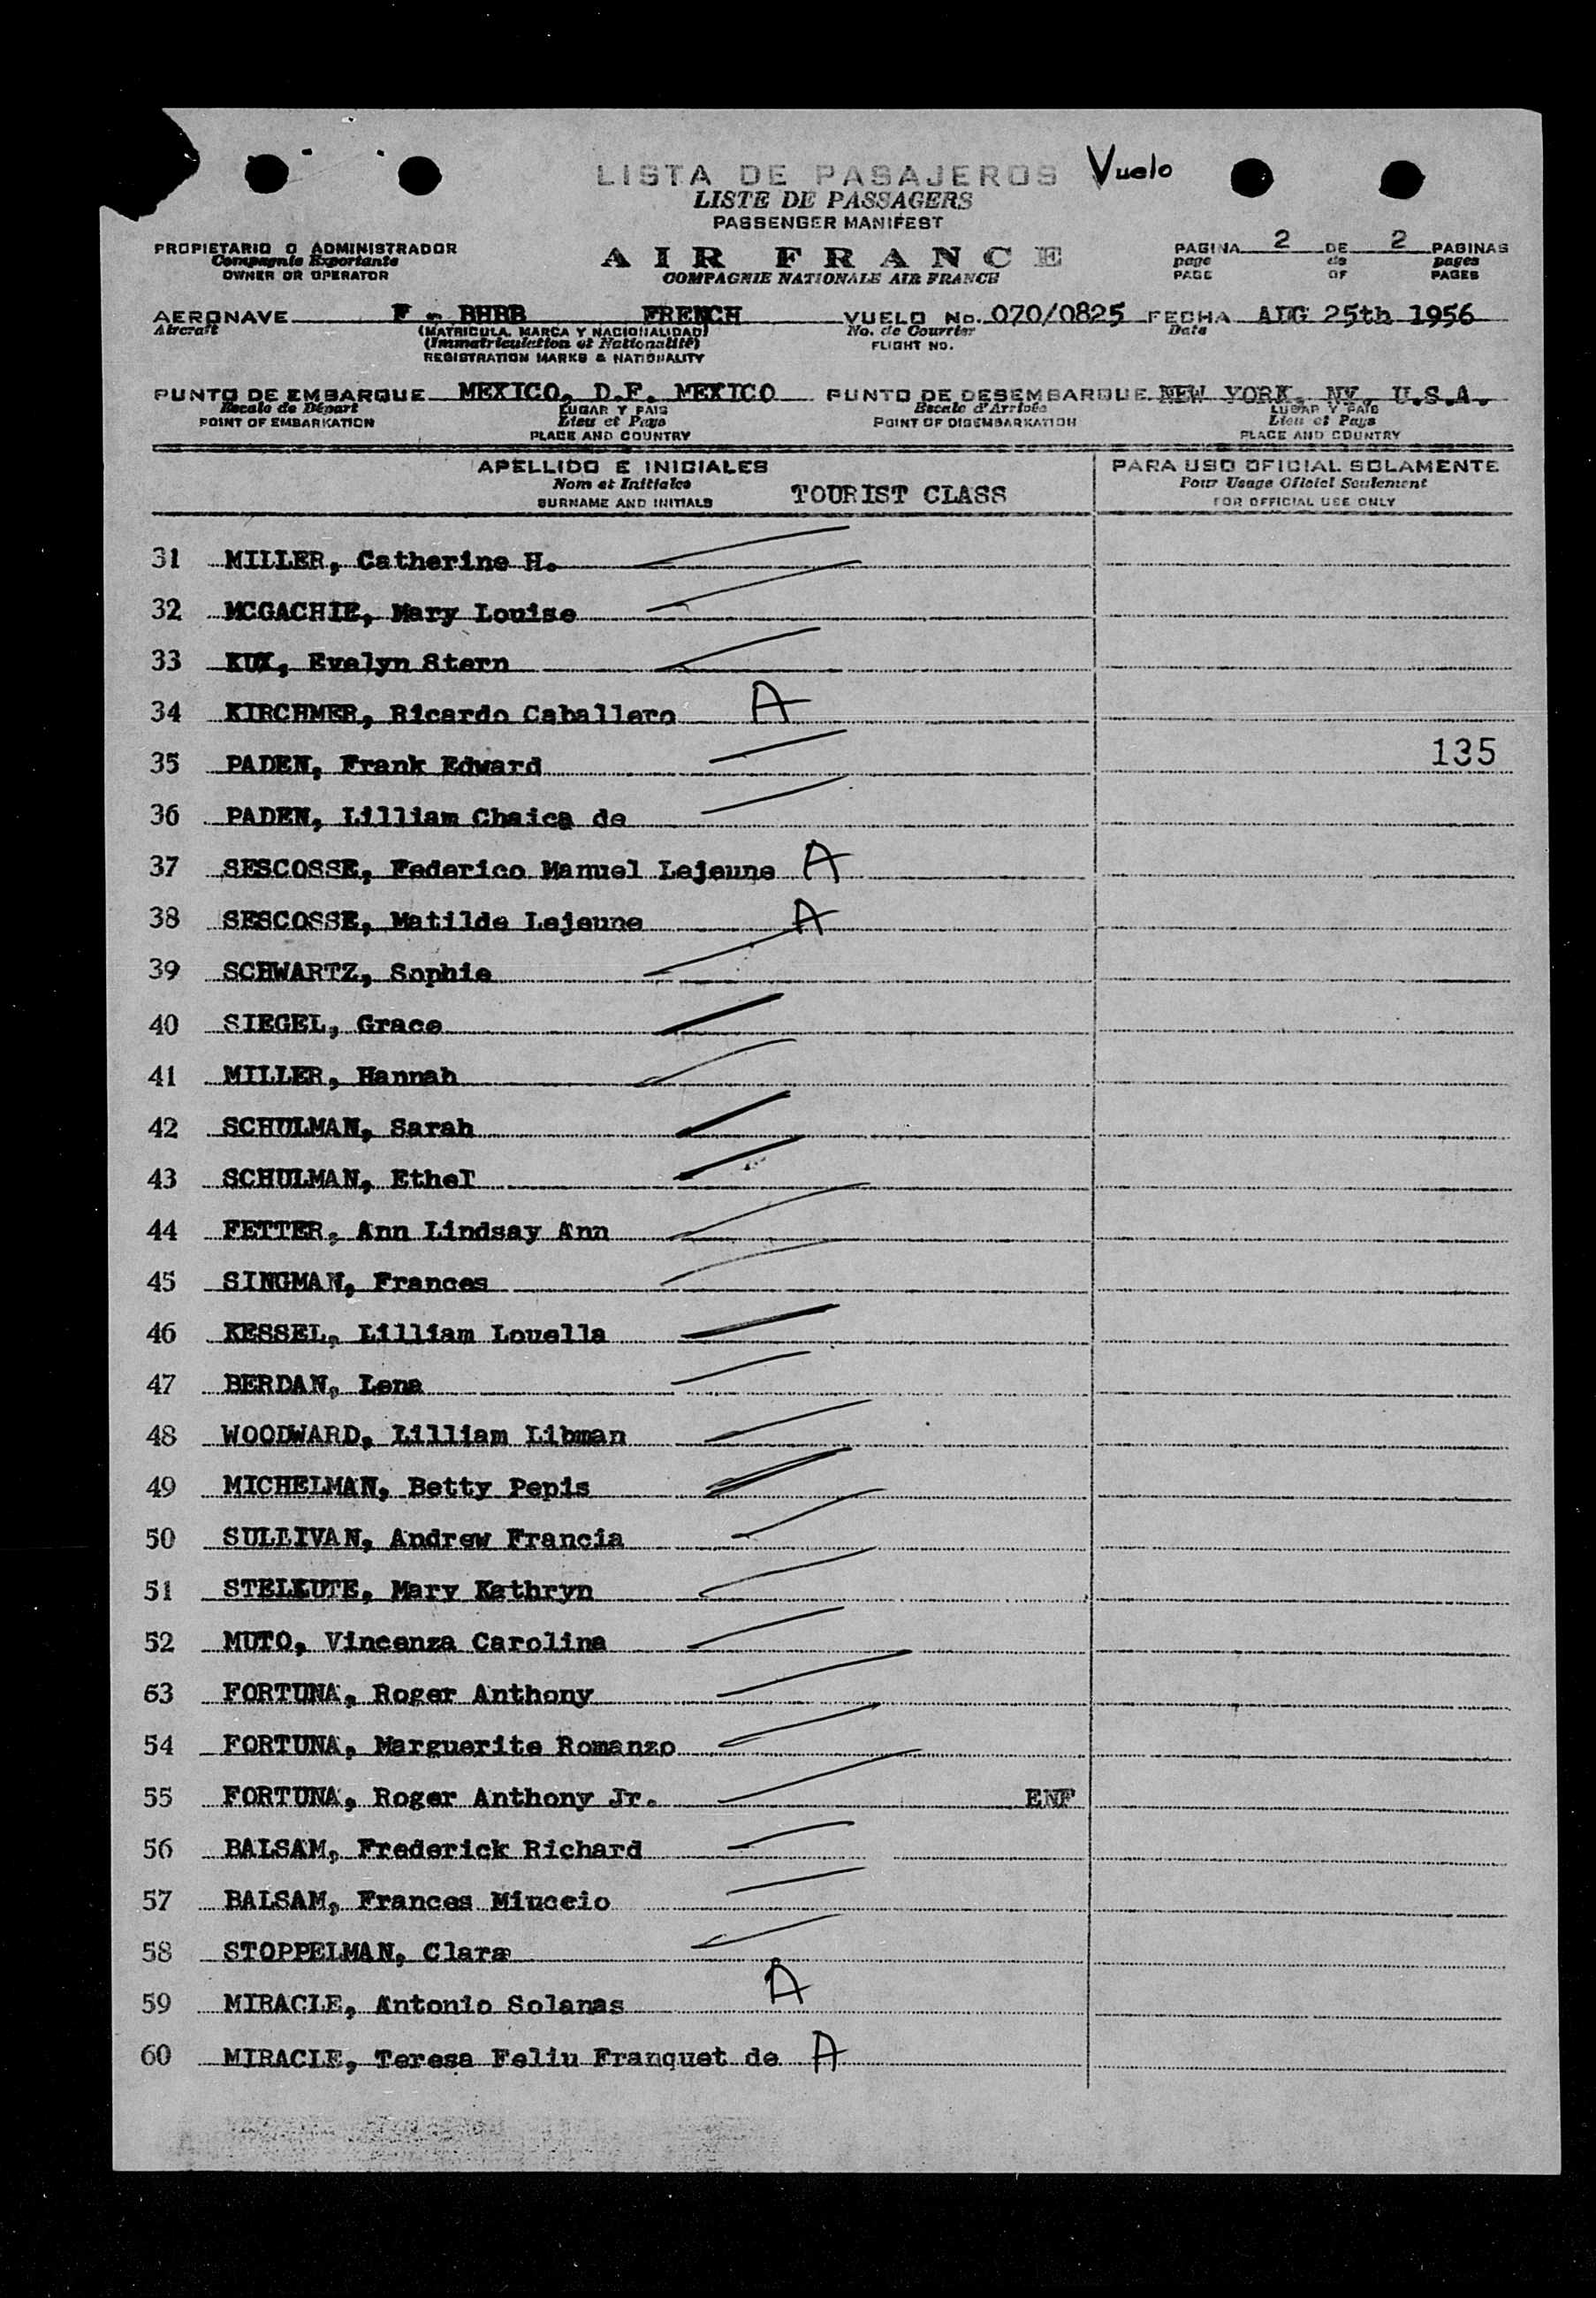 LISTA DE PASAJEROS Vuelo
LISTE DE PASSAGERS
PASSENGER MANIFEST
PROPIETARIO O ADMINISTRADOR
Compagnie Exportante
OWNER OR OPERATOR
AIR FRANCE
COMPAGNIE NATIONALE AIR FRANCE
PAGINA 2 DE 2 PAGINAS
page de pages
PAGE OF PAGES
AERONAVE F - BHBB FRENCH VUELO No. 070/0825 FECHA AUG 25th 1956
Aircraft (MATRICULA, MARCA Y NACIONALIDAD) No. de Courrier Date
(Immatriculation et Nationalité) FLIGHT NO.
REGISTRATION MARKS & NATIONALITY
PUNTO DE EMBARQUE MEXICO, D.F. MEXICO PUNTO DE DESEMBARQUE NEW YORK, NY, U.S.A.
Escale de Départ LUGAR Y PAIS Escale d'Arrivée LUGAR Y PAIS
POINT OF EMBARKATION Lieu et Pays POINT OF DISEMBARKATION Lieu et Pays
PLACE AND COUNTRY PLACE AND COUNTRY
APELLIDO E INICIALES PARA USO OFICIAL SOLAMENTE
Nom et Initiales TOURIST CLASS Pour Usage Officiel Seulement
SURNAME AND INITIALS FOR OFFICIAL USE ONLY
31 MILLER, Catherine H.
32 MCGACHIE, Mary Louise
33 KUX, Evelyn Stern
34 KIRCHMER, Ricardo Caballero A
35 PADEN, Frank Edward 135
36 PADEN, Lilliam Chaica de
37 SESCOSSE, Federico Manuel Lejeune A
38 SESCOSSE, Matilde Lejeune A
39 SCHWARTZ, Sophie
40 SIEGEL, Grace
41 MILLER, Hannah
42 SCHULMAN, Sarah
43 SCHULMAN, Ethel
44 FETTER, Ann Lindsay Ann
45 SINGMAN, Frances
46 KESSEL, Lilliam Louella
47 BERDAN, Lena
48 WOODWARD, Lilliam Libman
49 MICHELMAN, Betty Pepis
50 SULLIVAN, Andrew Francia
51 Mary Kathryn
52 MUTO, Vincenza Carolina
63 FORTUNA, Roger Anthony
54 FORTUNA, Marguerite Romanzo
55 FORTUNA, Roger Anthony Jr. ENF
56 BALSAM, Frederick Richard
57 BALSAM, Frances Miuccio
58 STOPPELMAN, Clara
59 MIRACLE, Antonio Solanas A
60 MIRACLE, Teresa Feliu Franquet de A